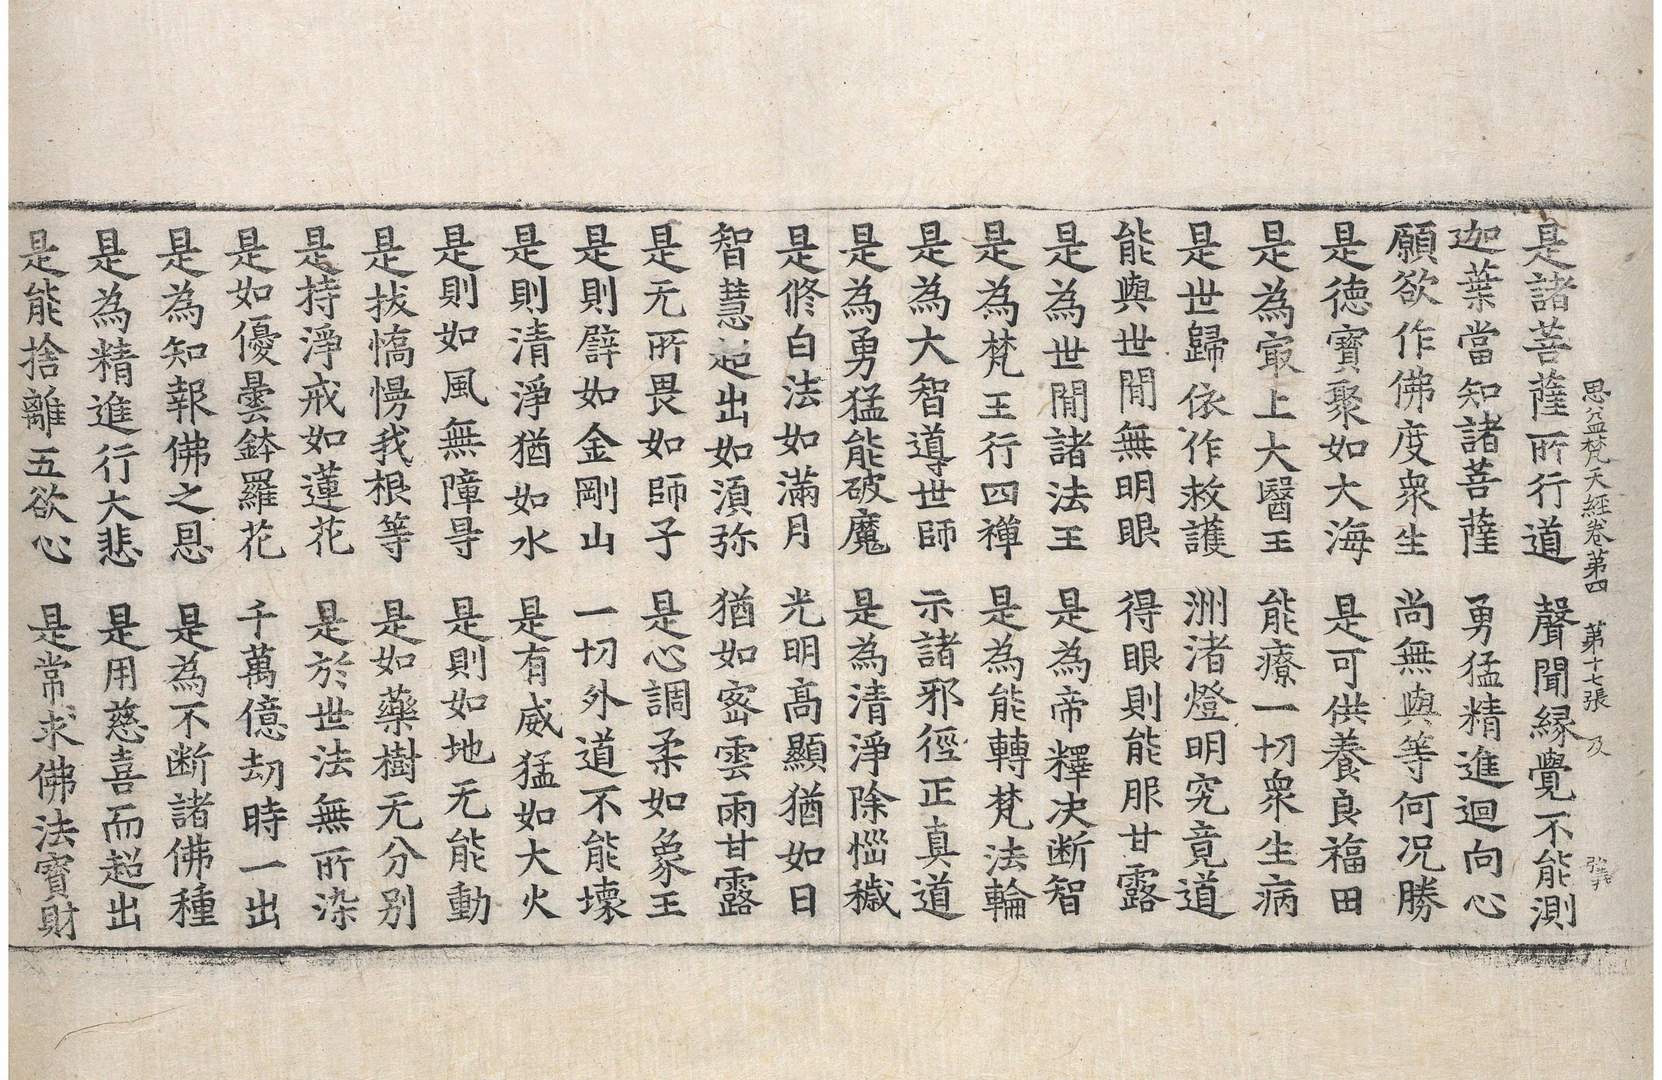 思益梵天經卷第四　第十七張　及
是諸菩薩所行道　聲聞縁覺不能測
迦葉當知諸菩薩　勇猛精進迴向心
願欲作佛度衆生　尚無與等何況勝
是德寶聚如大海　是可供養良福田
是為㝡上大醫王　能療一切衆生病
是世歸依作救護　洲渚燈明究竟道
能與世閒無明眼　得眼則能服甘露
是為世閒諸法王　是為帝釋決断智
是為梵王行四禪　是為能轉梵法輪
是為大智導世師　示諸邪徑正真道
是為勇猛能破魔　是為清淨除惱穢
是修白法如滿月　光明高顯猶如日
智慧超出如湏弥　猶如密雲雨甘露
是无所畏如師子　是心調柔如象王
是則譬如金剛山　一切外道不能壞
是則清淨猶如水　是有威猛如大火
是則如風無障㝵　是則如地无能動
是拔憍慢我根等　是如藥樹无分别
是持淨戒如蓮花　是於世法無所染
是如優曇鉢羅花　千萬億劫時一出
是為知報佛之恩　是為不断諸佛種
是為精進行大悲　是用慈喜而超出
是能捨離五欲心　是常求佛法寶財